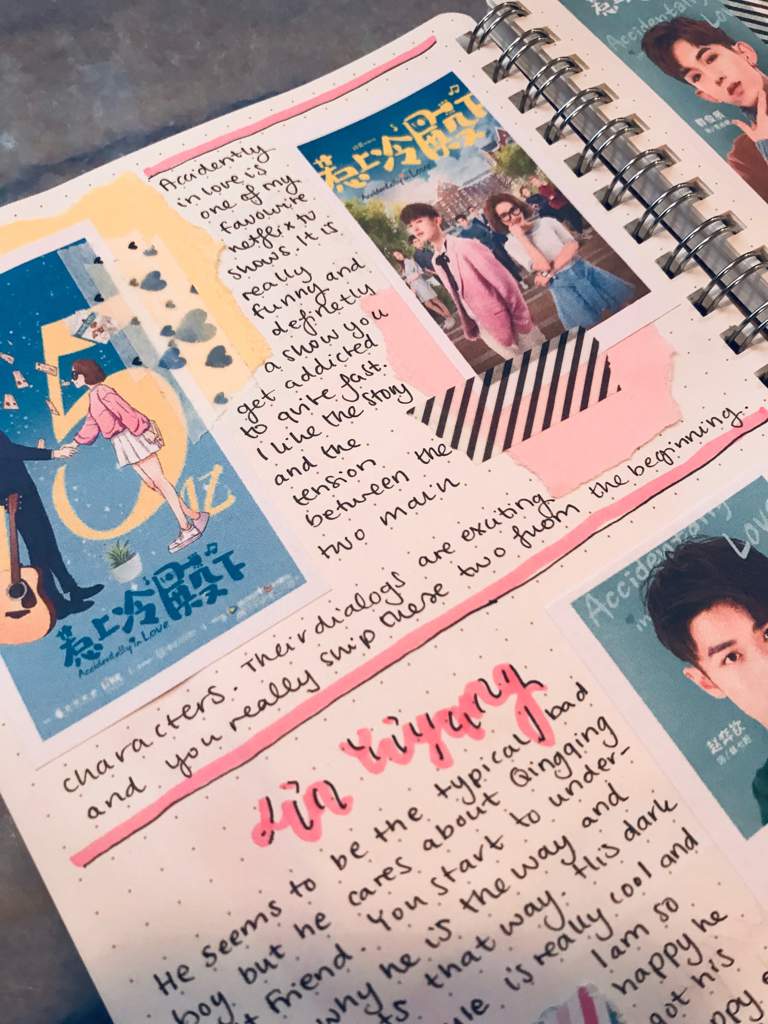 Accidently
in love is
one of my
favourite
netflix tv
shows. It is
really
funny and
definetly
a show you
get addicted
to quite fast.
I like the story
and the
tension
between the
two main
characters. Their dialogs are exciting
and you really ship these two from the beginning
惹上冷殿下
Accidentally in Love
5亿
惹上冷殿下
Accidentally in Love
Accidentally
Love
Accidentally
in
LOVE
赵弈钦
Lin Yiyang
He seems to be the typical bad
boy but he cares about Qingqing
friend. You start to under-
why he is the way and
that way. His dark
is really cool and
I am so
happy he
got his